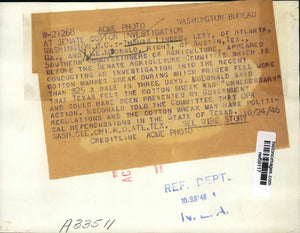 WASHINGTON BUREAU
W-21268 ACME PHOTO
AT SENATE COTTON INVESTIGATION
WASHINGTON, D.C.: LINDER, LEFT, OF ATLANTA,
GA., McDONALD, RIGHT, OF AUSTIN, TEX.,
SOUTHERN COMMISSIONERS OF AGRICULTURE, APPEARED
BEFORE THE SENATE AGRICULTURE COMMITTEE WHICH IS
CONDUCTING AN INVESTIGATION INTO THE RECENT
COTTON MARKET BREAK DURING WHICH PRICES FELL MORE
THAN $25 A BALE IN THREE DAYS. McDONALD SAID
THAT TEXAS FELT THE COTTON BREAK WAS UNNECESSARY
AND COULD HAVE BEEN PREVENTED BY GOVERNMENT
ACTION. McDONALD TOLD THE COMMITTEE THAT OPA
REGULATIONS AND THE COTTON BREAK MAY HAVE POLITI-
CAL REPERCUSSIONS IN THE STATE OF TEXAS.
SEE WIRE STORY
WASH.CLE.CHI.K.C.ATL.TEX. 10/24/46
CREDITLINE ACME PHOTO
REF. DEPT.
N.E.A.
A33511